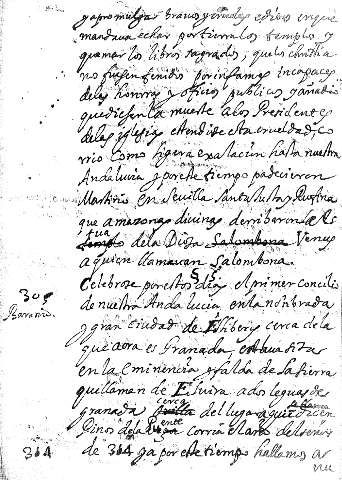 y a promulgar bravos y crueles edictos en que
mandava echar por tierra los templos y
quemar los libros sagrados, que los christia
nos fuesen tenidos por infames incapaces
de las honrras y officios publicos y añadio
que diesen la muerte a los Presidentes
de las iglesias
rio como ligera exalacion hasta nuestra
Andalucia y por este tiempo padecieron
Martirio en Sevilla Santa Justa y Rufina
que amazonas divinas derribaron
tua
de la Diosa Salombona Venus
a quien llamavan Salombona.
§ 15.
Celebrose por estos dias el primer concilio
305
de nuestra Andalucia, en la nonbrada
Baronio
y gran ciudad de Eliberis cerca de la
que aora es Granada,
en la eminencia y falda de la sierra
que llaman de Elvira a dos leguas de
granada cerca del lugar a quien dicen
Pinos de la Puente corria el año del señor
304 de 304 ya por este tiempo hallamos ar